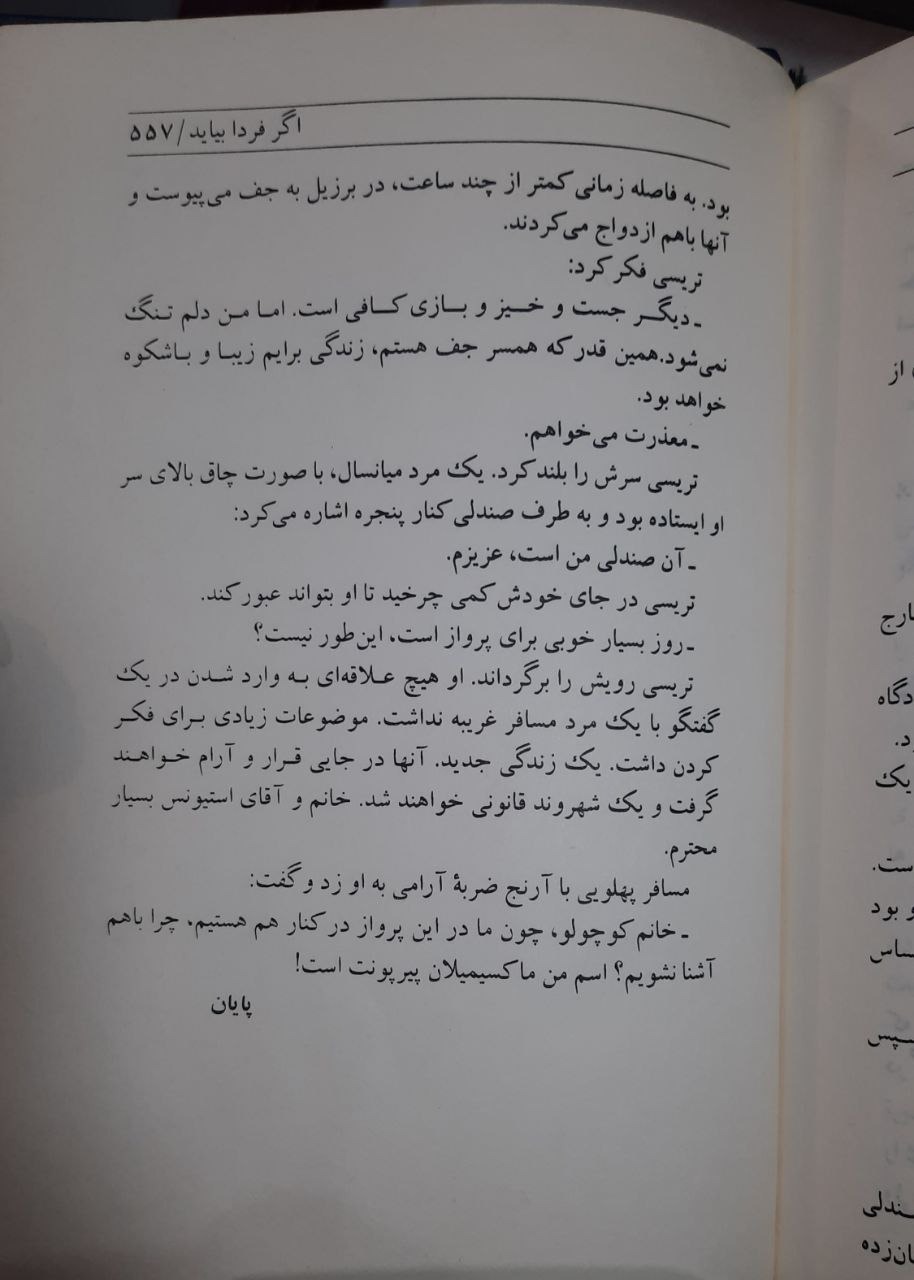 اگر فردا بیاید/۵۵۷
بود. به فاصله زمانی کمتر از چند ساعت، در برزیل به جف می‌پیوست و
آنها باهم ازدواج می‌کردند.
تریسی فکر کرد:
ـ دیگر جست و خیز و بازی کافی است. اما من دلم تنگ
نمی‌شود. همین قدر که همسر جف هستم، زندگی برایم زیبا و باشکوه
خواهد بود.
ـ معذرت می‌خواهم.
تریسی سرش را بلند کرد. یک مرد میانسال، با صورت چاق بالای سر
او ایستاده بود و به طرف صندلی کنار پنجره اشاره می‌کرد:
ـ آن صندلی من است، عزیزم.
تریسی در جای خودش کمی چرخید تا او بتواند عبور کند.
ـ روز بسیار خوبی برای پرواز است، این‌طور نیست؟
تریسی رویش را برگرداند. او هیچ علاقه‌ای به وارد شدن در یک
گفتگو با یک مرد مسافر غریبه نداشت. موضوعات زیادی برای فکر
کردن داشت. یک زندگی جدید. آنها در جایی قرار و آرام خواهند
گرفت و یک شهروند قانونی خواهند شد. خانم و آقای استیونس بسیار
محترم.
مسافر پهلویی با آرنج ضربهٔ آرامی به او زد و گفت:
ـ خانم کوچولو، چون ما در این پرواز در کنار هم هستیم، چرا باهم
آشنا نشویم؟ اسم من ماکسیمیلان پیرپونت است!
پایان
از
دگاه
یک
است.
و بود
ساس
سپس